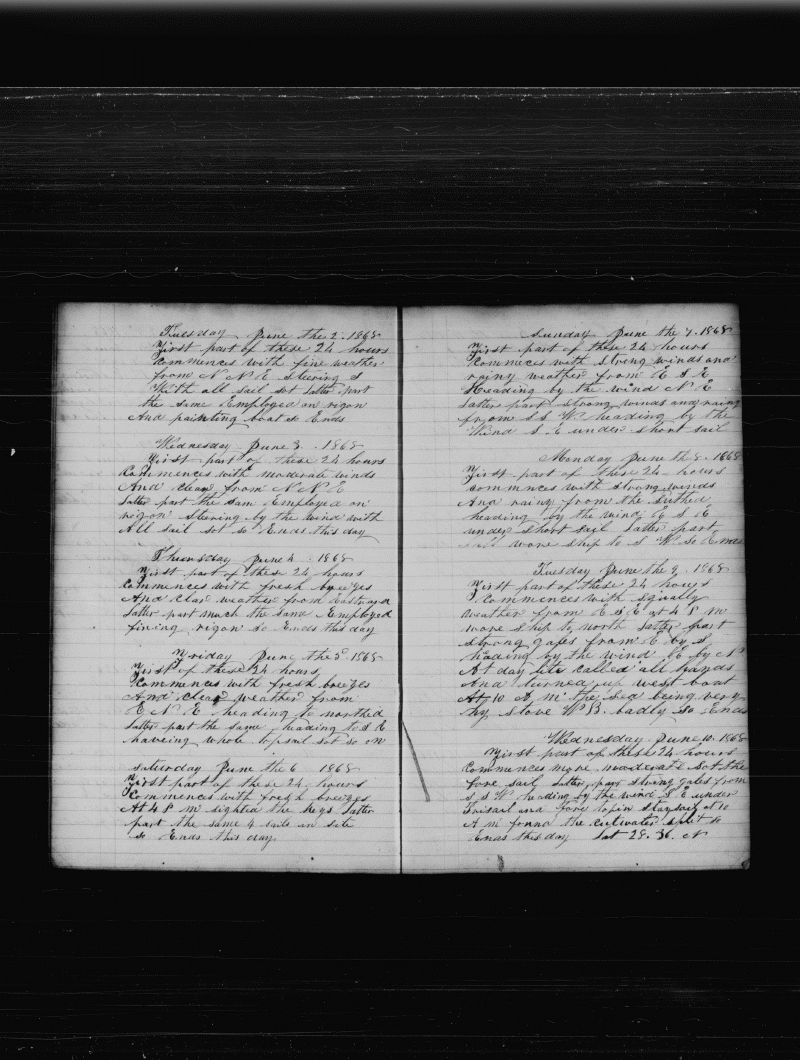 Tuesday June the 2. 1868
First part of these 24 hours
Commences with fine wether
from N N E Steering S
With all sail set Latter part
the same Employed on rigon
And painting boat So Ends
Wednesday June 3. 1868
First part of these 24 hours
Commences with moderate winds
And clear from N N E
Latter part the sam Employed on
rigon Steering by the wind with
All sail set so Ends this day
Thursday June 4. 1868
First part of these 24 hours
Commences with fresh breezes
And clar weather from Eastward
Latter part much the same Employed
fixing rigon so Ends this day
Friday June the 5 1868
First of these 24 hours
Commences with fresh breezes
And clear weather from
E N E heading to northed
Latter part the same heading to S E
haveing whole topsail set so on
Saturday June the 6 1868
First part of these 24 hours
Commences with fresh breezes
At 4 P M sighted the Keys Latter
part the same 4 sails in site
So Ends this day
Sunday June the 7. 1868
First part of these 24 hours
Commences with Strong winds and
rainy weather from E S E
Heading by the wind N E
Latter part strong winds and rainy
from S S W heading by the
Wind S. E under short sail
Monday June th 8. 1868
First part of these 24 hours
commences with strong winds
And rainy from the Suthed
heading by the wind E S E
under short sail Latter part
wore ship to S W So Ends
Tuesday June the 9. 1868
First part of these 24 hours
Commences with squally
weather from E S E at 4 P M
wore ship to north Latter part
strong gales from E by S
heading by the wind by N
At day lite called all hands
And turned up west boat
At 10 A m the sea being very
hy stove W B. badly So Ends
Wednesday June 10. 1868
First part of these 24 hours
Commences more moderate Sot the
fore sail Latter part strong gales from
S S W heading by the wind S E under
and Fore staysail at 10
A M found the cutwater split So
Ends this day Lat 28. 36. N